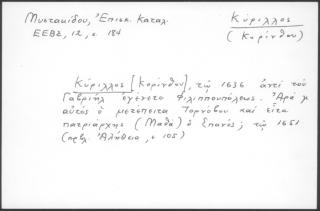 Μυστακίδου, Ἐπισκ. Καταλ.
ΕΕΒΣ, 12, σ. 184
Κύριλλος
(Κορίνθου)
Κύριλλος [Κορίνθου], τῷ 1636 ἀντί τοῦ
Γαβριήλ ἐγένετο Φιλιππουπόλεως. Ἆρά γε
αὐτός ὁ μετέπειτα Τορνόβου καί εἶτα
πατριάρχης (Μαθᾶ) ὁ Σπανός; τῷ 1651
(πρβλ. Ἀλήθεια, σ 105)